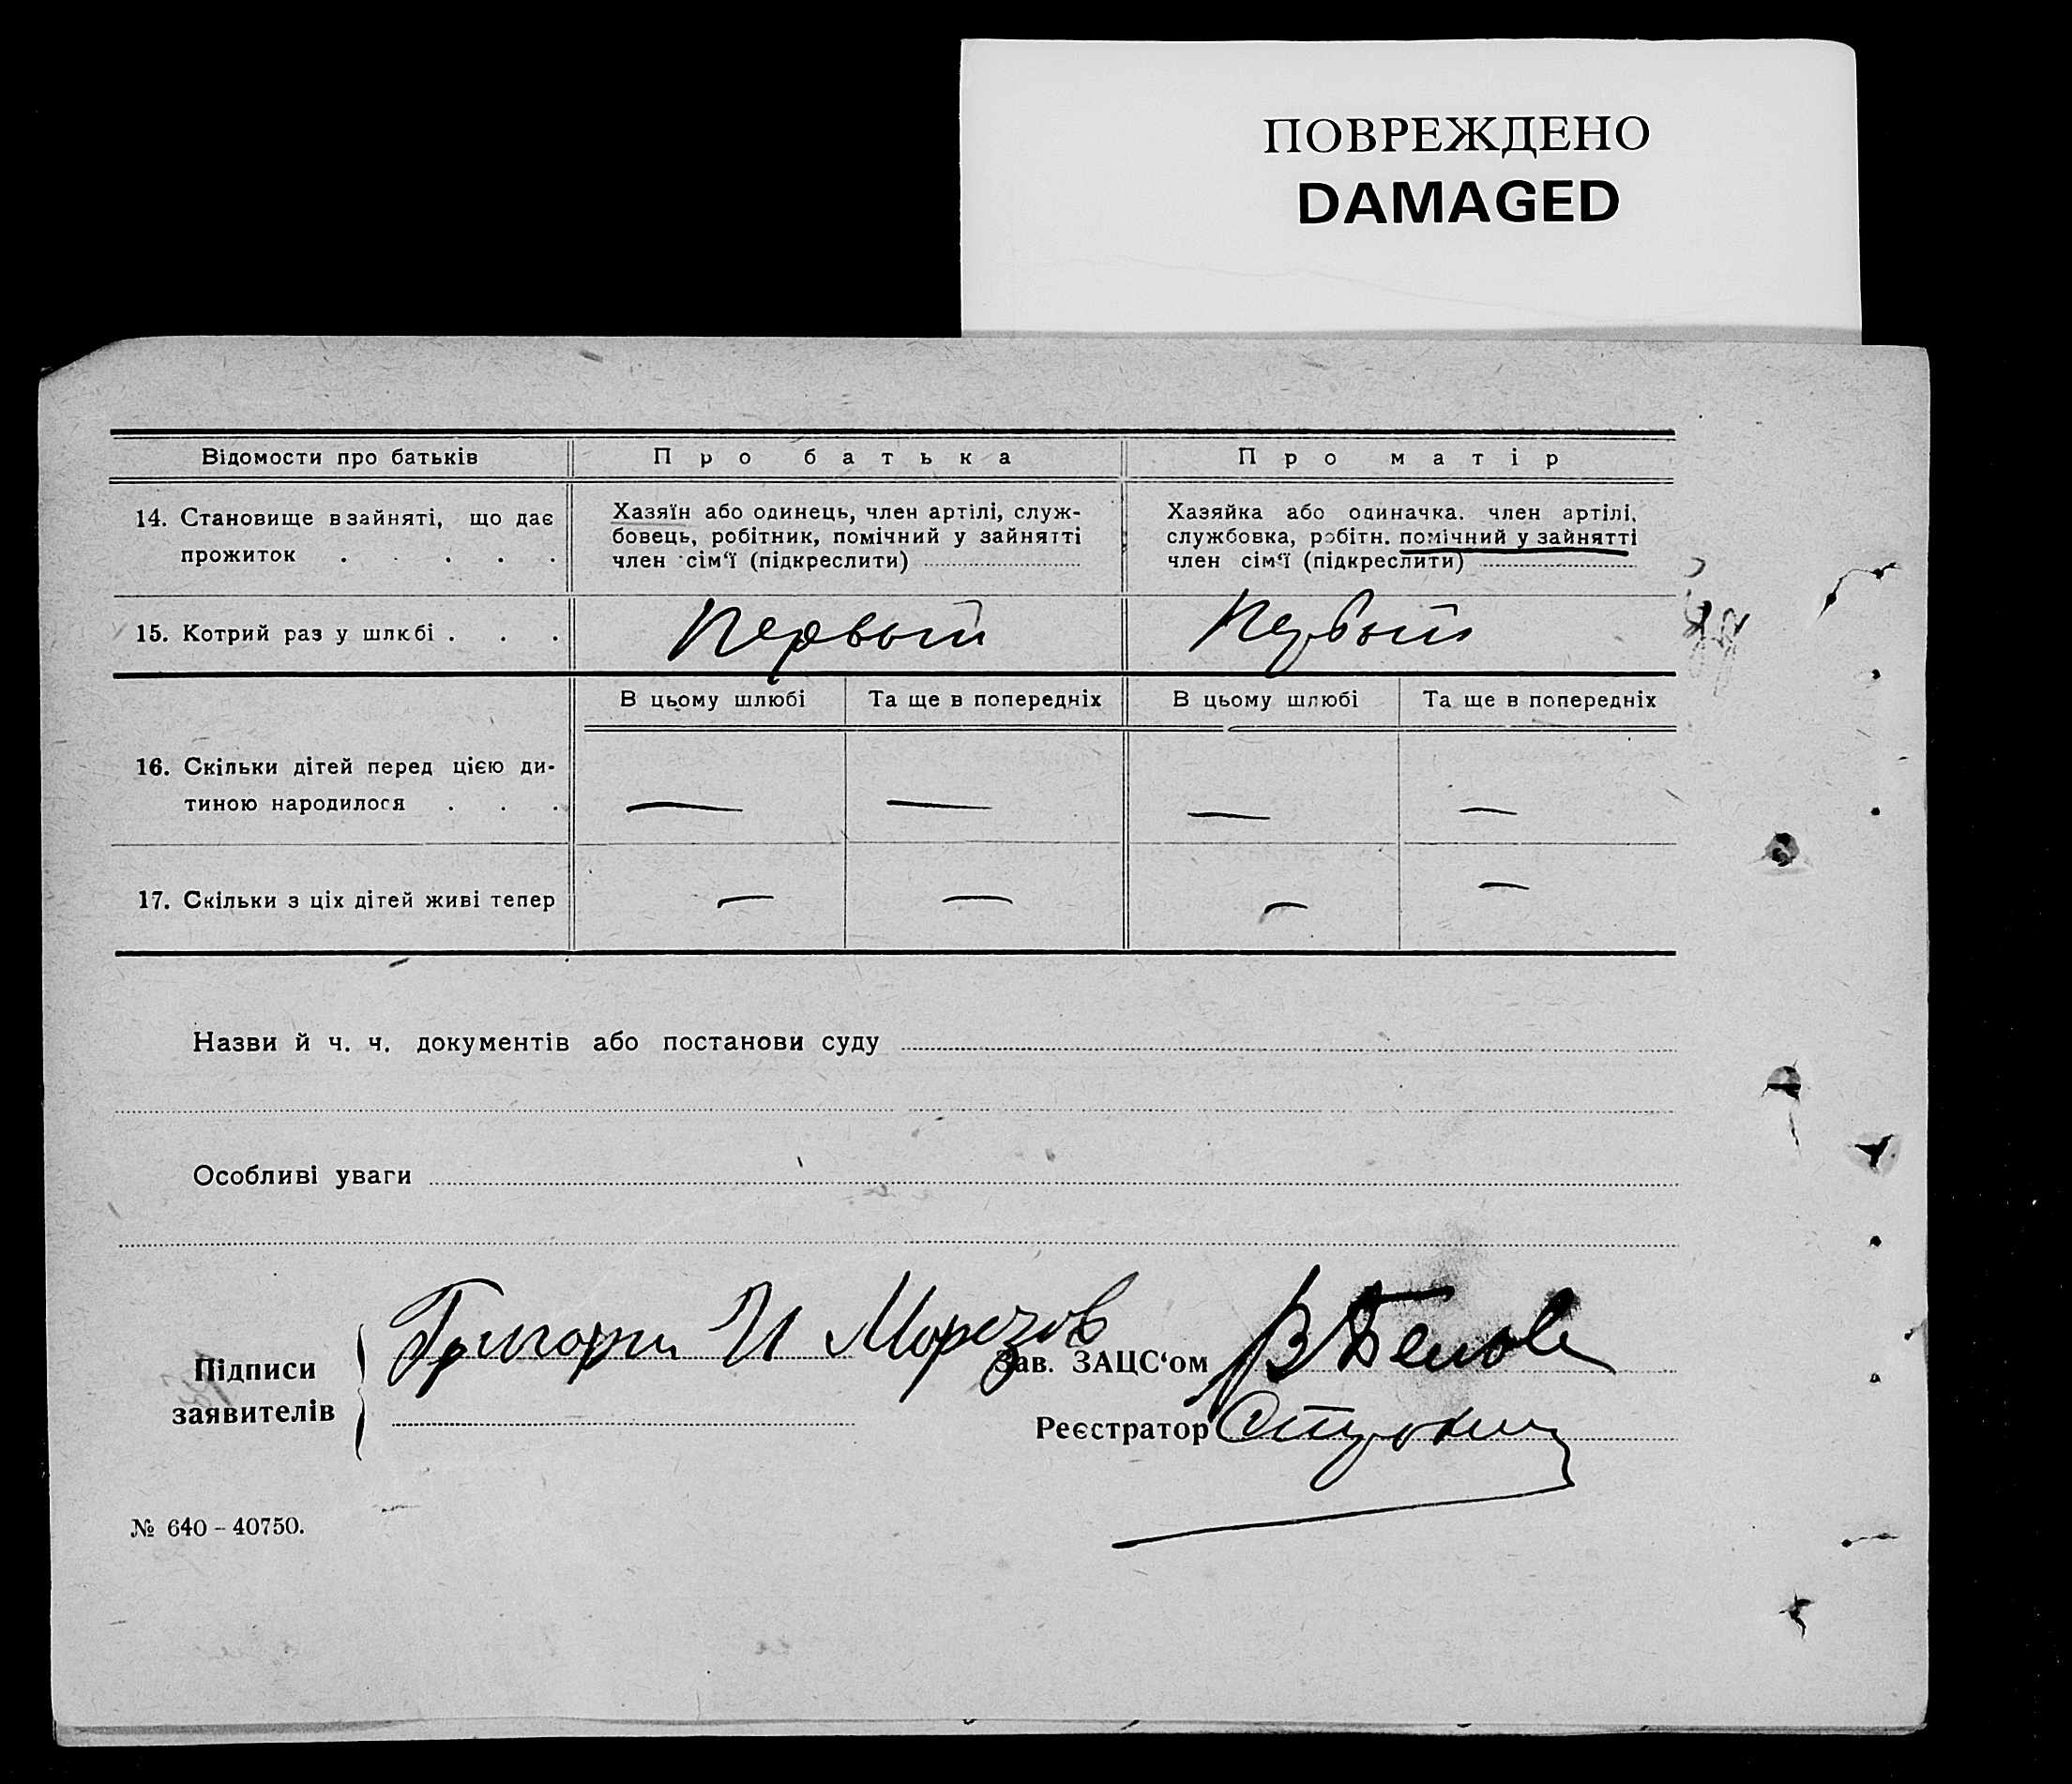 ПОВРЕЖДЕНО
DAMAGED
Відомости про батьків
Про батька
Про матір
14. Становище в зайняті, що дає
прожиток . . . . .
Хазяїн або одинець, член артілі, служ-
бовець, робітник, помічний у зайнятті
член сім‘ї (підкреслити)
Хазяйка або одиначка. член артілі,
службовка, робітн. помічний у зайнятті
член сім‘ї (підкреслити)
15. Котрий раз у шлюбі . . .
Первый
Первый
В цьому шлюбі
Та ще в попередніх
В цьому шлюбі
Та ще в попередніх
16. Скільки дітей перед цією ди-
тиною народилося . . .
— — — —
17. Скільки з ціх дітей живі тепер
— — — —
Назви й ч. ч. документів або постанови суду
Особливі уваги
Підписи
заявителів
Григори И Морозов
Зав. ЗАЦС‘ом
Реєстратор
№ 640 – 40750.